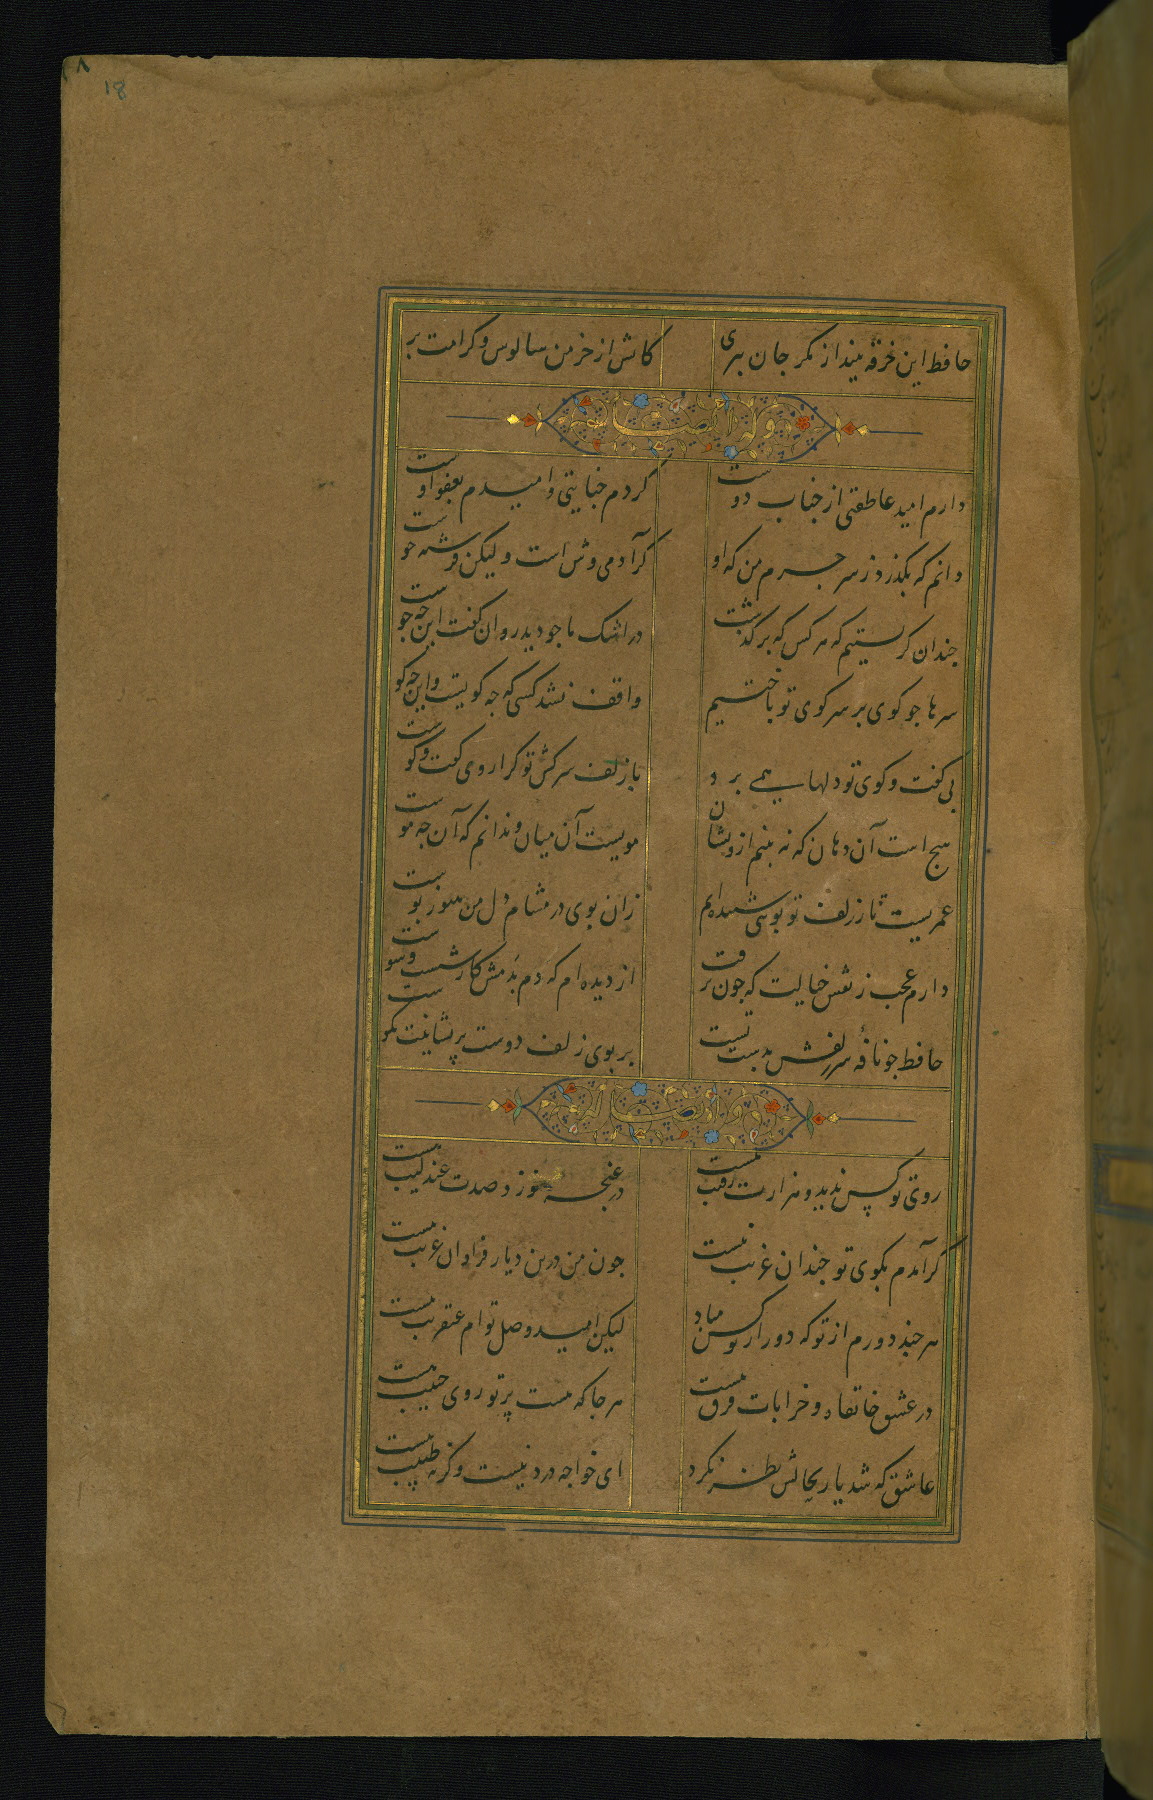 ۱۸
18
حافظ این خرقه بینداز مگر جان ببری
کاش از خرمن سالوس و کرامت بر
وله ایضا
دارم امید عاطفتی از جناب دوست
کردم خیانتی و امیدم بعفو اوست
دانم که بگذرد ز سر جرم من که او
گر آدمی وش است و لیکن فرشته خوست
چندان گریستیم که هر کس که برگذشت
در اشک ما چو دید روان گفت این چه جوست
سرها چو گوی بر سر کوی تو باختیم
واقف نشد کسی که چه گویست و این چه کوست
بی گفت و گوی تو دلها همی برد
با زلف سرکش تو کرا روی گفت و گوست
هیچ است آن دهان که نه بینم ازو نشان
مویست آن میان و ندانم که آن چه موست
عمریست تا ز زلف تو بویی شنیده‌ایم
زان بوی در مشام دل من هنوز بوست
دارم عجب ز نقش خیالت که چون نرفت
از دیده‌ام که دم بدمش کار شست و شوست
حافظ چو نافه سر زلفش بدست تست
بر بوی زلف دوست پریشانیت نکوست
وله ایضا
روی تو کس ندید و هزارت رقیب هست
در غنچه هنوز و صدت عندلیب هست
گر آمدم بکوی تو چندان غریب نیست
چون من درین دیار فراوان غریب هست
هر چند دورم از تو که دور از تو کس مباد
لیکن امید وصل توام عنقریب هست
در عشق خانقاه و خرابات فرق نیست
هر جا که هست پرتو روی حبیب هست
عاشق که شد یار بحالش نظر نکرد
ای خواجه درد نیست وگرنه طبیب هست